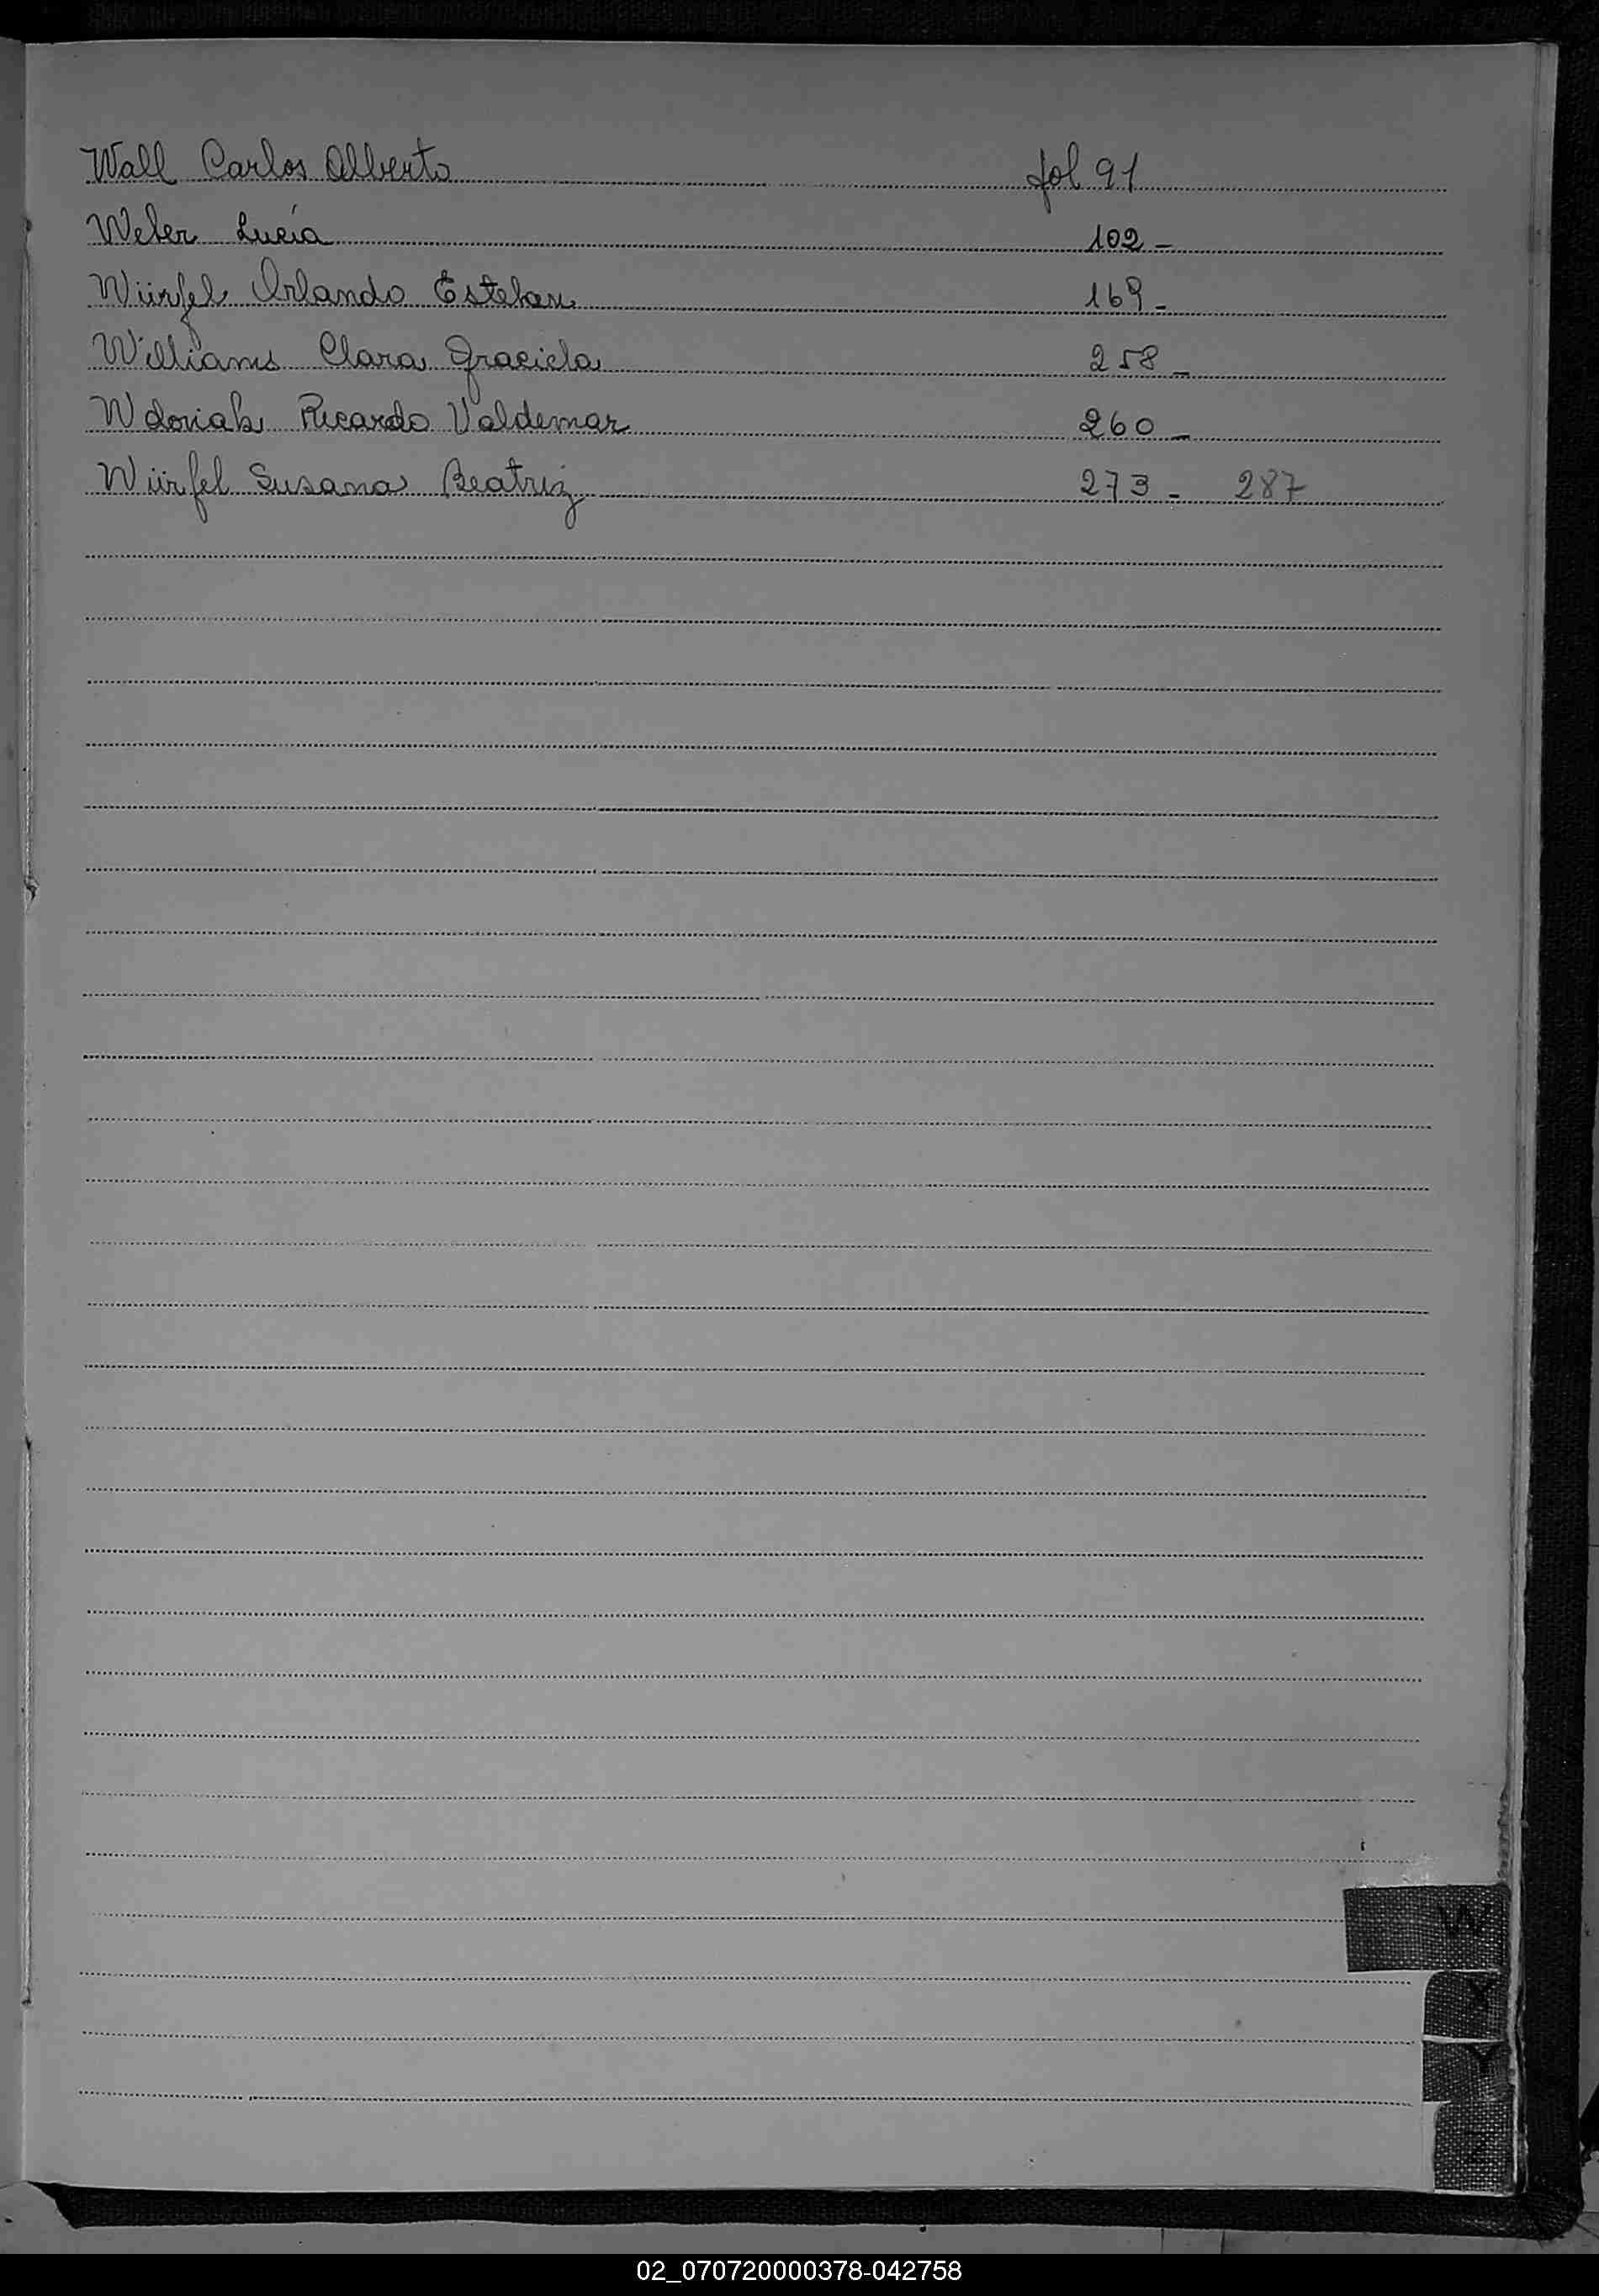 Wall Carlos Alberto fol 91
Weber Lucía 102 -
Würfel Orlando Esteban 169 -
Williams Clara Graciela 258 -
Wdoviak Ricardo Valdemar 260 -
Würfel Susana Beatriz 273 - 287
W
X
Y
Z
02_070720000378-042758